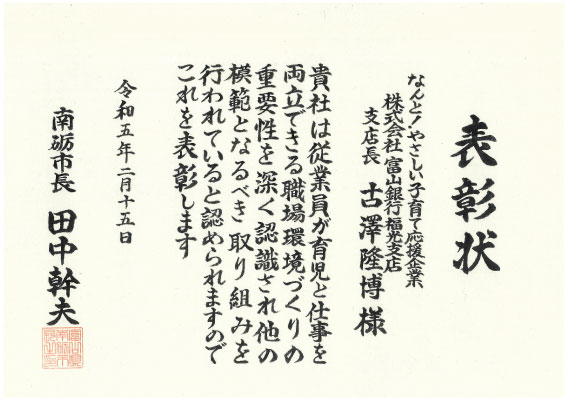 表彰状
なんと！やさしい子育て応援企業
株式会社富山銀行福光支店
支店長 古澤隆博様
貴社は従業員が育児と仕事を
両立できる職場環境づくりの
重要性を深く認識され他の
模範となるべき取り組みを
行われていると認められますので
これを表彰します
令和五年二月十五日
南砺市長 田中幹夫